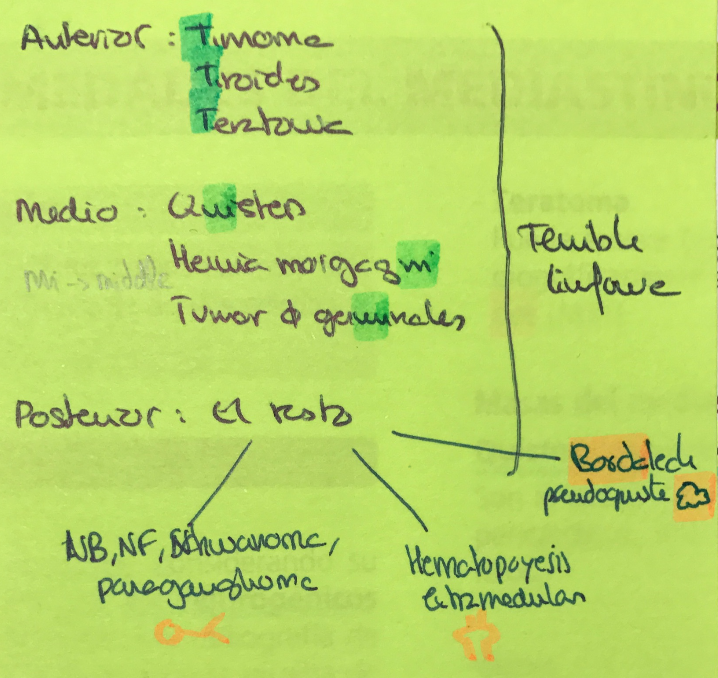 Anterior : Timoma
Tiroides
Teratoma
Medio : Quistes
Hernia morgagni
Mi -> middle
Tumor ϕ germinales
Terrible
linfoma
Posterior : El resto
Bordalech
pseudoquiste
NB, NF, Schwanoma,
paraganglioma
Hematopoyesis
extramedular
Teratoma
Masas del